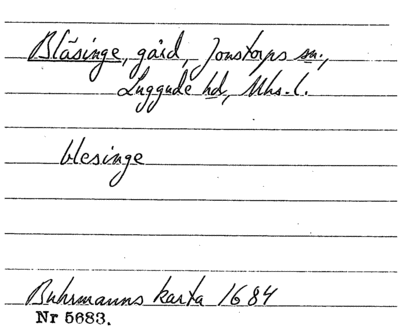 Bläsinge, gård, Jonstorps sn.,
Luggude hd, Mhs. l.
blesinge
Buhrmanns karta 1684
Nr 5683.